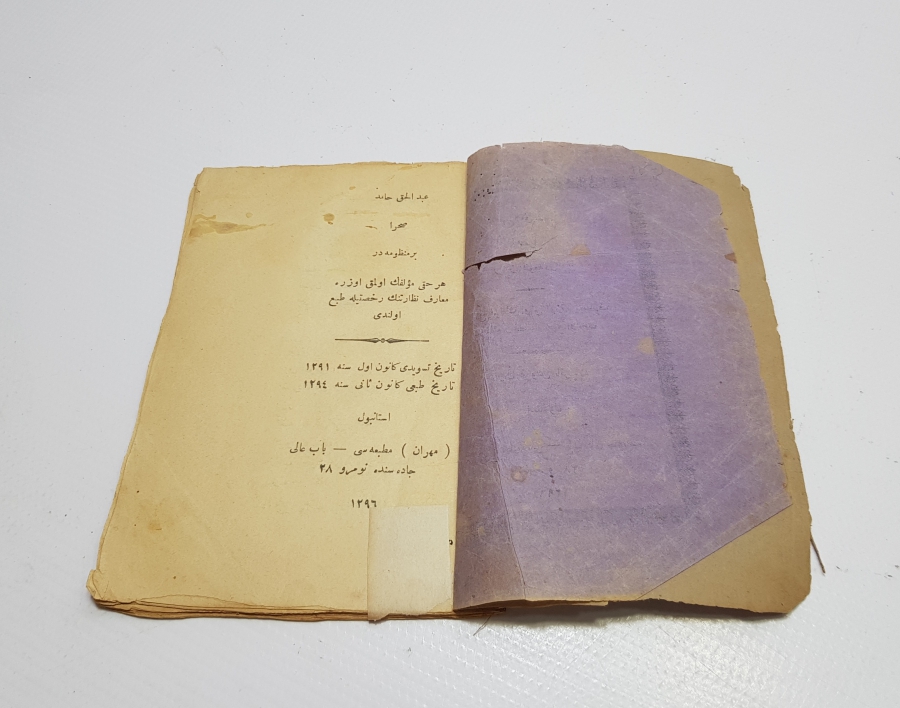 عبد الحق حامد
صحرا
بر منظومه در
هر حقی مؤلفك اولمق اوزره
معارف نظارتنك رخصتيله طبع
اولندی
تاريخ تسويدی كانون اول سنه ١٢٩١
تاريخ طبعی كانون ثانی سنه ١٢٩٤
استانبول
( مهران ) مطبعه سی — باب عالی
جاده سنده نومرو ٢٨
١٢٩٦